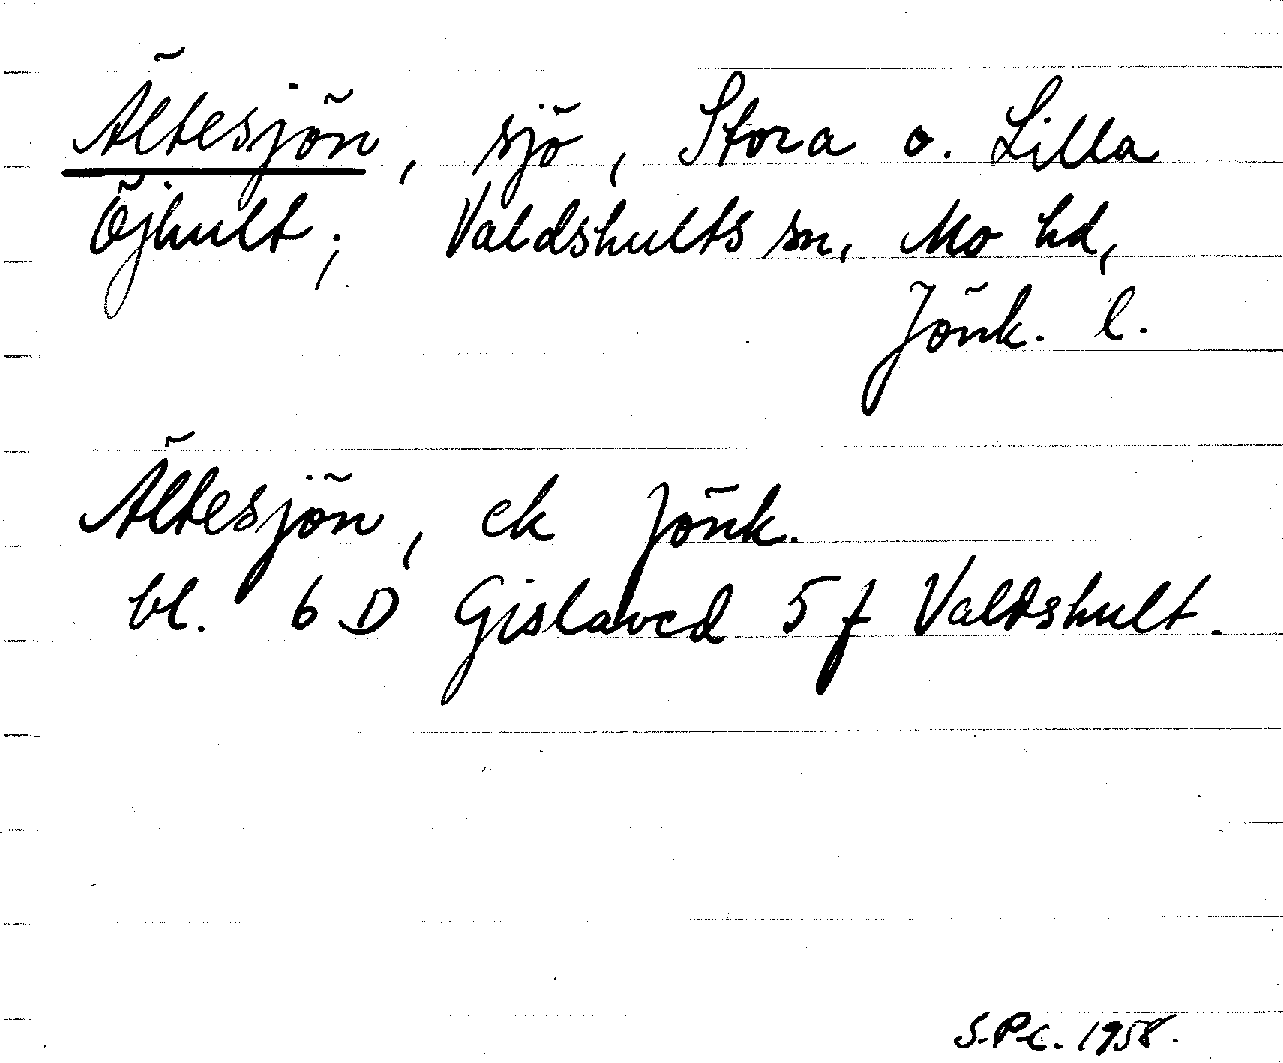 Ältesjön, sjö, Stora o. Lilla
Öjhult; Valdshults sn, Mo hd,
Jönk. l.
Ältesjön, ek Jönk.
bl. 6 D Gislaved 5 f Valdshult.
S.P.C. 1958.